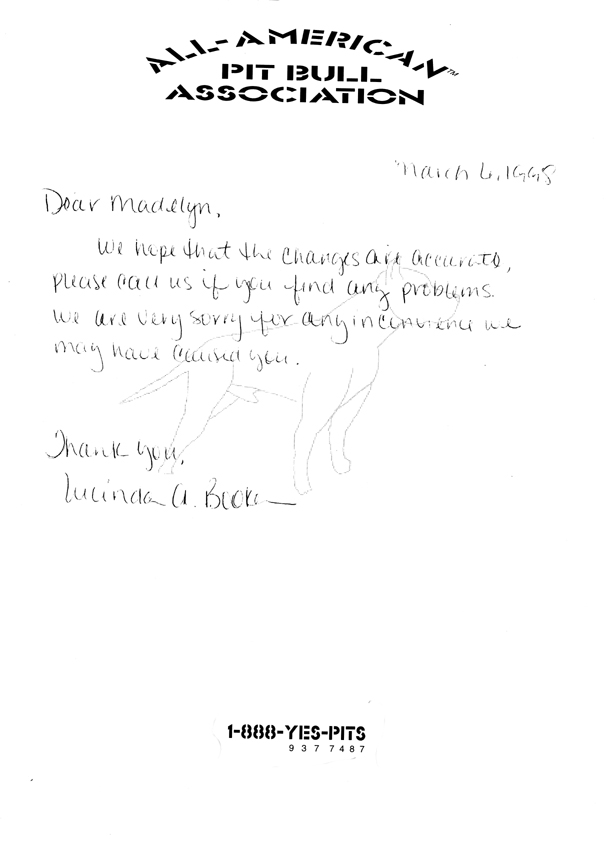 ALL-AMERICAN™
PIT BULL
ASSOCIATION
March 6, 1998
Dear Madelyn,
We hope that the changes are accurate,
please call us if you find any problems.
We are very sorry for any inconvience we
may have caused you.
Thank you,
Lucinda A. Booker
1-888-YES-PITS
937 7487